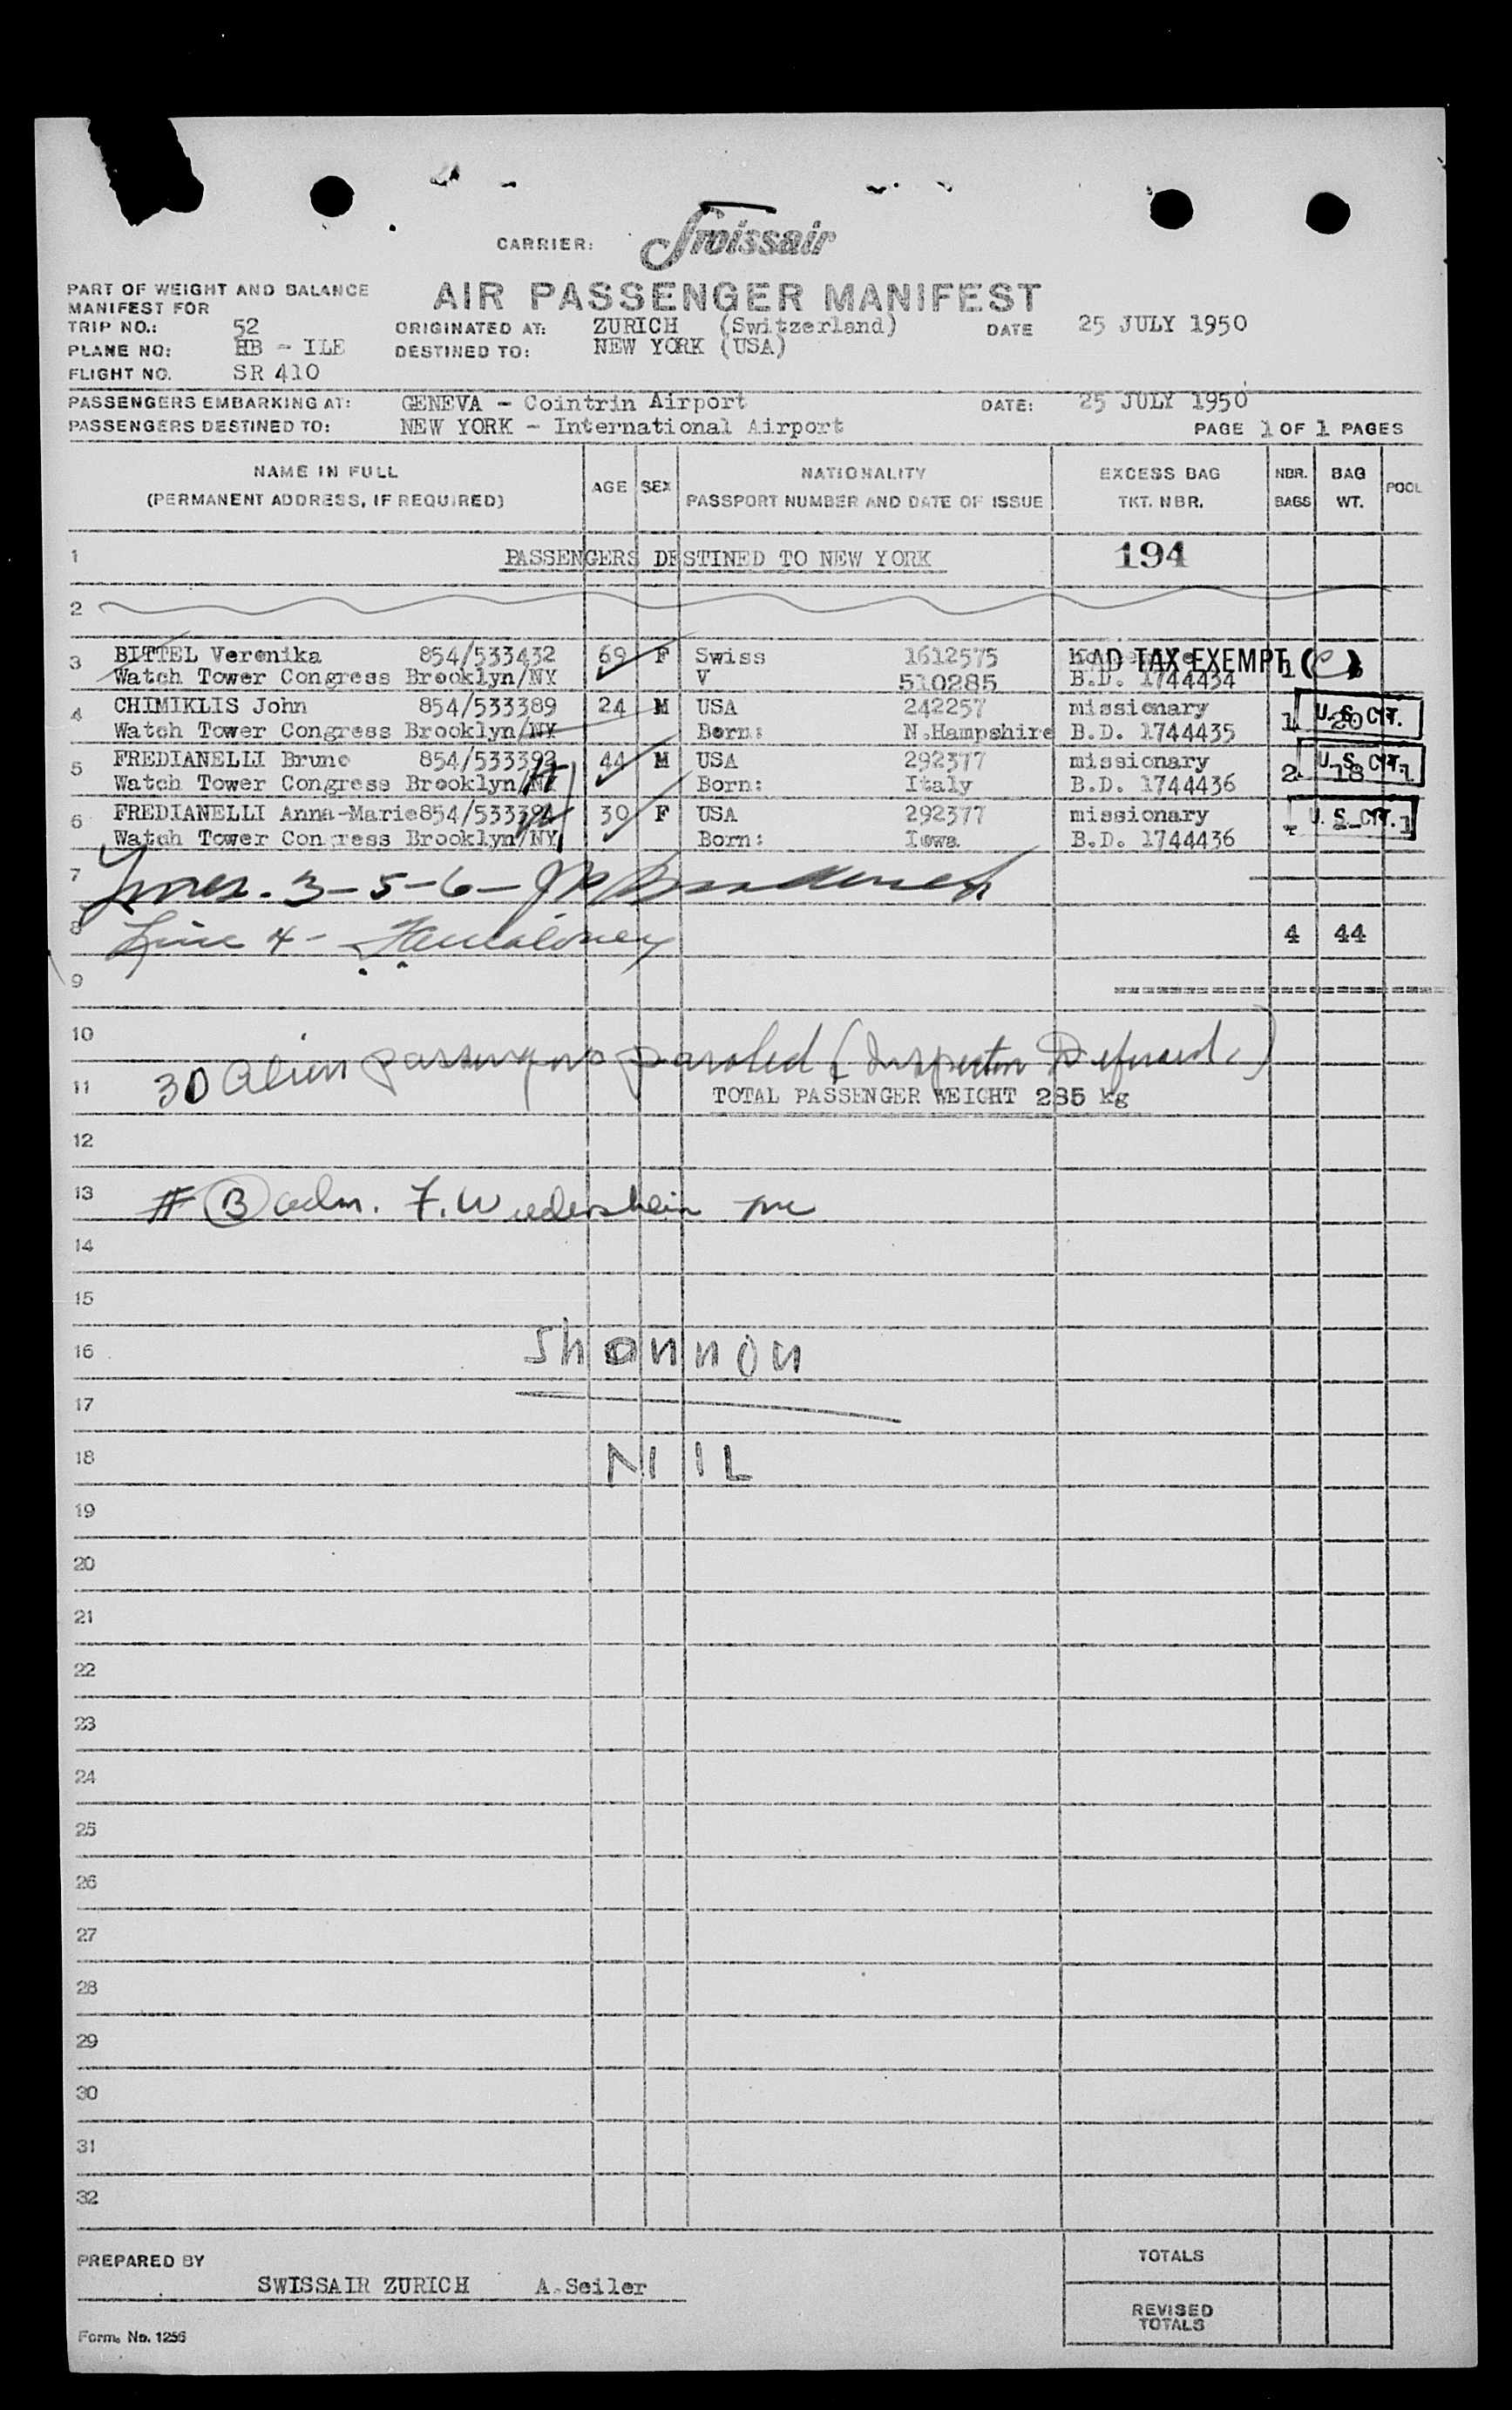 CARRIER: Swissair
PART OF WEIGHT AND BALANCE
MANIFEST FOR
AIR PASSENGER MANIFEST
TRIP NO.: 52 ORIGINATED AT: ZURICH (Switzerland) DATE 25 JULY 1950
PLANE NO: HB - ILE DESTINED TO: NEW YORK (USA)
FLIGHT NO. SR 410
PASSENGERS EMBARKING AT: GENEVA - Cointrin Airport DATE: 25 JULY 1950
PASSENGERS DESTINED TO: NEW YORK - International Airport PAGE 1 OF 1 PAGES
NAME IN FULL
(PERMANENT ADDRESS, IF REQUIRED) AGE SEX NATIONALITY
PASSPORT NUMBER AND DATE OF ISSUE EXCESS BAG
TKT. NBR. NBR.
BAGS BAG
WT. POOL
1 PASSENGERS DESTINED TO NEW YORK 194
2
3 BITTEL Veronika 854/533432 69 F Swiss 1612575 HEAD TAX EXEMPT
Watch Tower Congress Brooklyn/NY V 510285 B.D. 1744434 1
4 CHIMIKLIS John 854/533389 24 M USA 242257 missionary U. S. CIT.
Watch Tower Congress Brooklyn/NY Born: N.Hampshire B.D. 1744435 1 20
5 FREDIANELLI Bruno 854/533392 44 M USA 292377 missionary U. S. CIT.
Watch Tower Congress Brooklyn/NY Born: Italy B.D. 1744436 2 18 1
6 FREDIANELLI Anna-Marie 854/533391 30 F USA 292377 missionary U. S. CIT.
Watch Tower Congress Brooklyn/NY Born: Iowa B.D. 1744436 - - 1
7 Lines. 3-5-6-
8 Line 4- 4 44
9
10
30 Alien passengers paroled (Inspection Deferred.)
11 TOTAL PASSENGER WEIGHT 285 kg
12
13 # B adm. F. Wiedershein
14
15
16 Shannon
17
18 NIIL
19
20
21
22
23
24
25
26
27
28
29
30
31
32
PREPARED BY TOTALS
SWISSAIR ZURICH A.Seiler
REVISED
TOTALS
Form. No. 1256